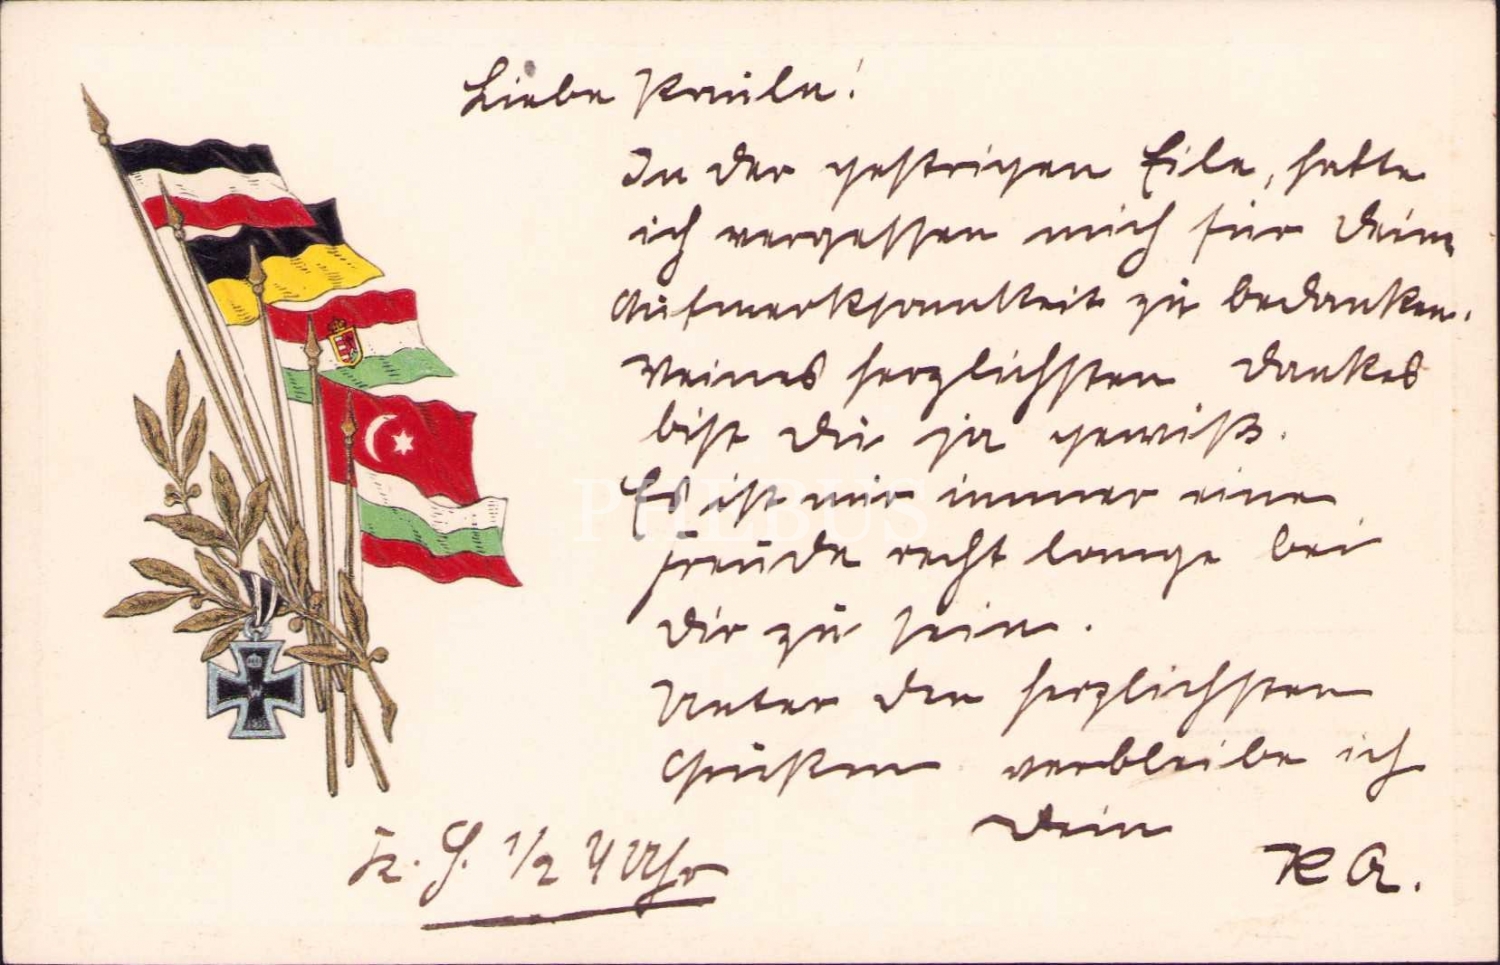 Liebe Paula!
In der gestrigen Eile, hatte
ich vergessen mich für Deine
Aufmerksamkeit zu bedanken.
Meines herzlichsten Dankes
bist Du ja gewiß.
Es ist mir immer eine
Freude recht lange bei
Dir zu sein.
Unter den herzlichsten
Grüßen verbleibe ich
Dein
K A.
½ 4 Uhr
PHEBUS